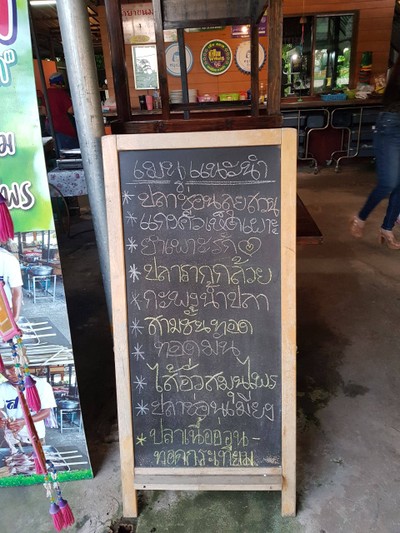 เมนูแนะนำ
* ปลาช่อนลุยสวน
* แกงคั่วเห็ดเผาะ
* ยำเพาะรัก
* ปลารากกล้วย
* กะพงน้ำปลา
* สามชั้นทอด
* ทอดมัน
* ไส้อั่วสมุนไพร
* ปลาช่อนเมี่ยง
* ปลาเนื้ออ่อน-
ทอดกระเทียม